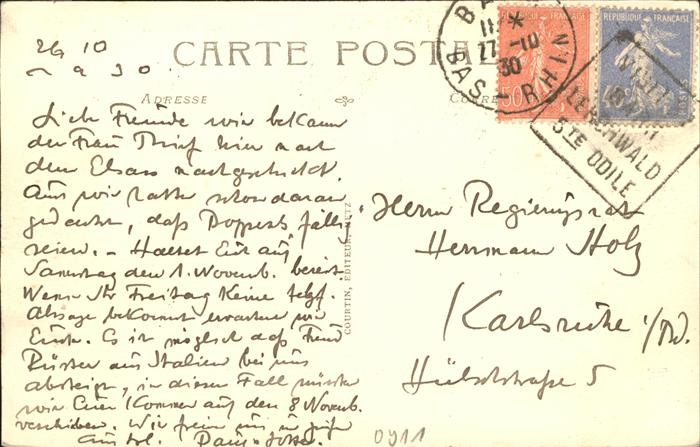 26 10
1930.
CARTE POSTA
ADRESSE
CORRE
BA
11 *
27 -10
30
BAS - RHIN
RÉPUBLIQUE FRANÇAISE
50
RÉPUBLIQUE FRANÇAISE
POSTES
VISIT
LERCHWALD
STE ODILE
Liebe Freunde wir bekamen
der Frau hier nach
dem Elsass nachgeschickt.
Auch wir hatten schon daran
gedacht, daß
seien. - Haltet Euch auf
Samstag den 1. Novemb. bereit.
Wenn Ihr Freitag keine telgf.
Absage bekommt erwarten wir
Euch. Es ist möglich daß Freund
aus Italien bei uns
absteigt, in diesem Fall müssten
wir Euer Kommen auf den 8 Novemb.
verschieben. Wir freuen uns
COURTIN, EDITEUR, METZ
Herrn Regierungsrat
Herrmann Holz
Karlsruhe i/Bd.
Hübschstraße 5
0911